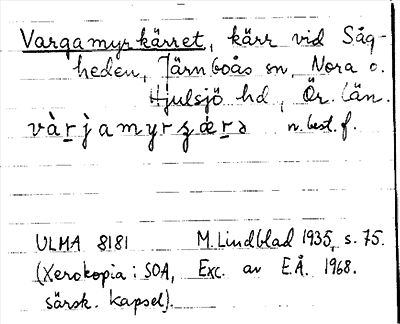 Vargamyrkärret, kärr vid Såg-
heden, Järnboås sn, Nora o.
Hjulsjö hd, Ör. län.
vàṟjamyrʒǽṟə n. best. f.
ULMA 8181 M. Lindblad 1935, s. 75.
(Xerokopia i SOA, Exc. av E.Å. 1968.
särsk. kapsel).